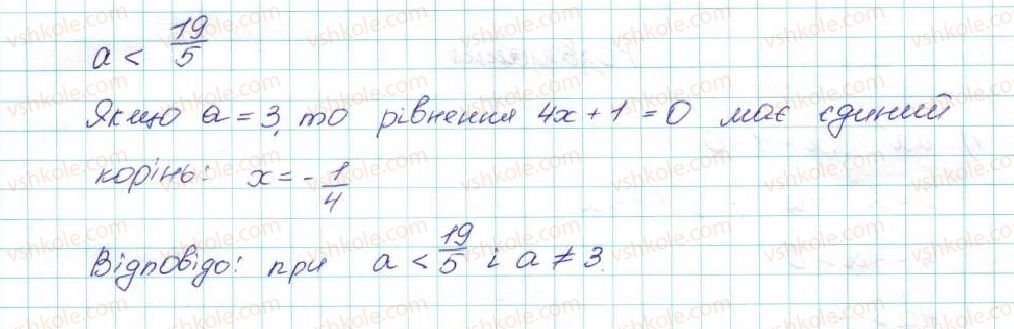 a < 19/5
Якщо a = 3, то рівнення 4x + 1 = 0 має єдиний
корінь: x = - 1/4
Відповідь: при a < 19/5 і a ≠ 3.